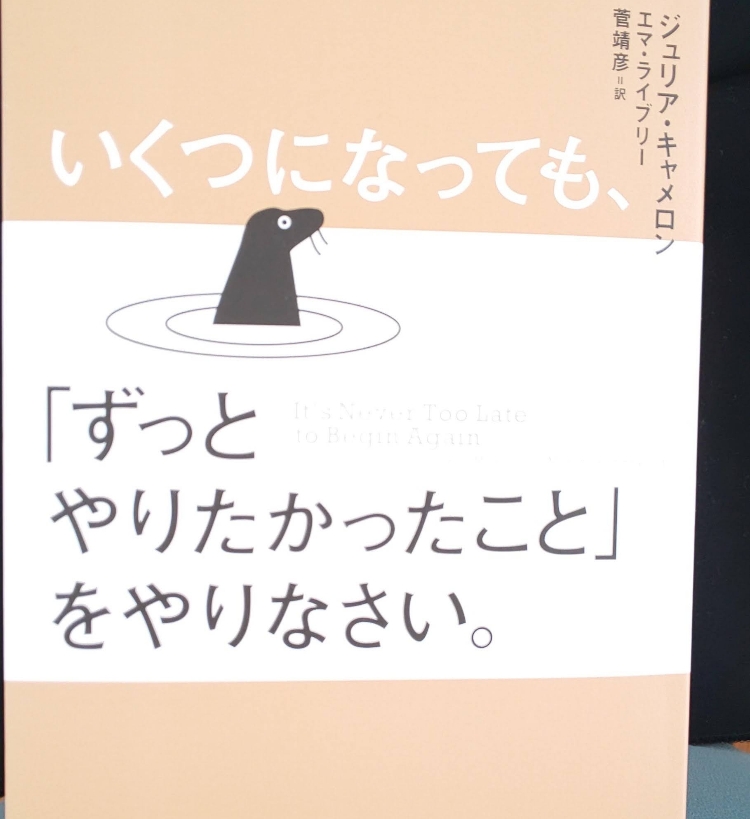 ジュリア・キャメロン
エマ・ライブリー
菅靖彦=訳
いくつになっても、
「ずっと
It's Never Too Late
to Begin Again
やりたかったこと」
をやりなさい。